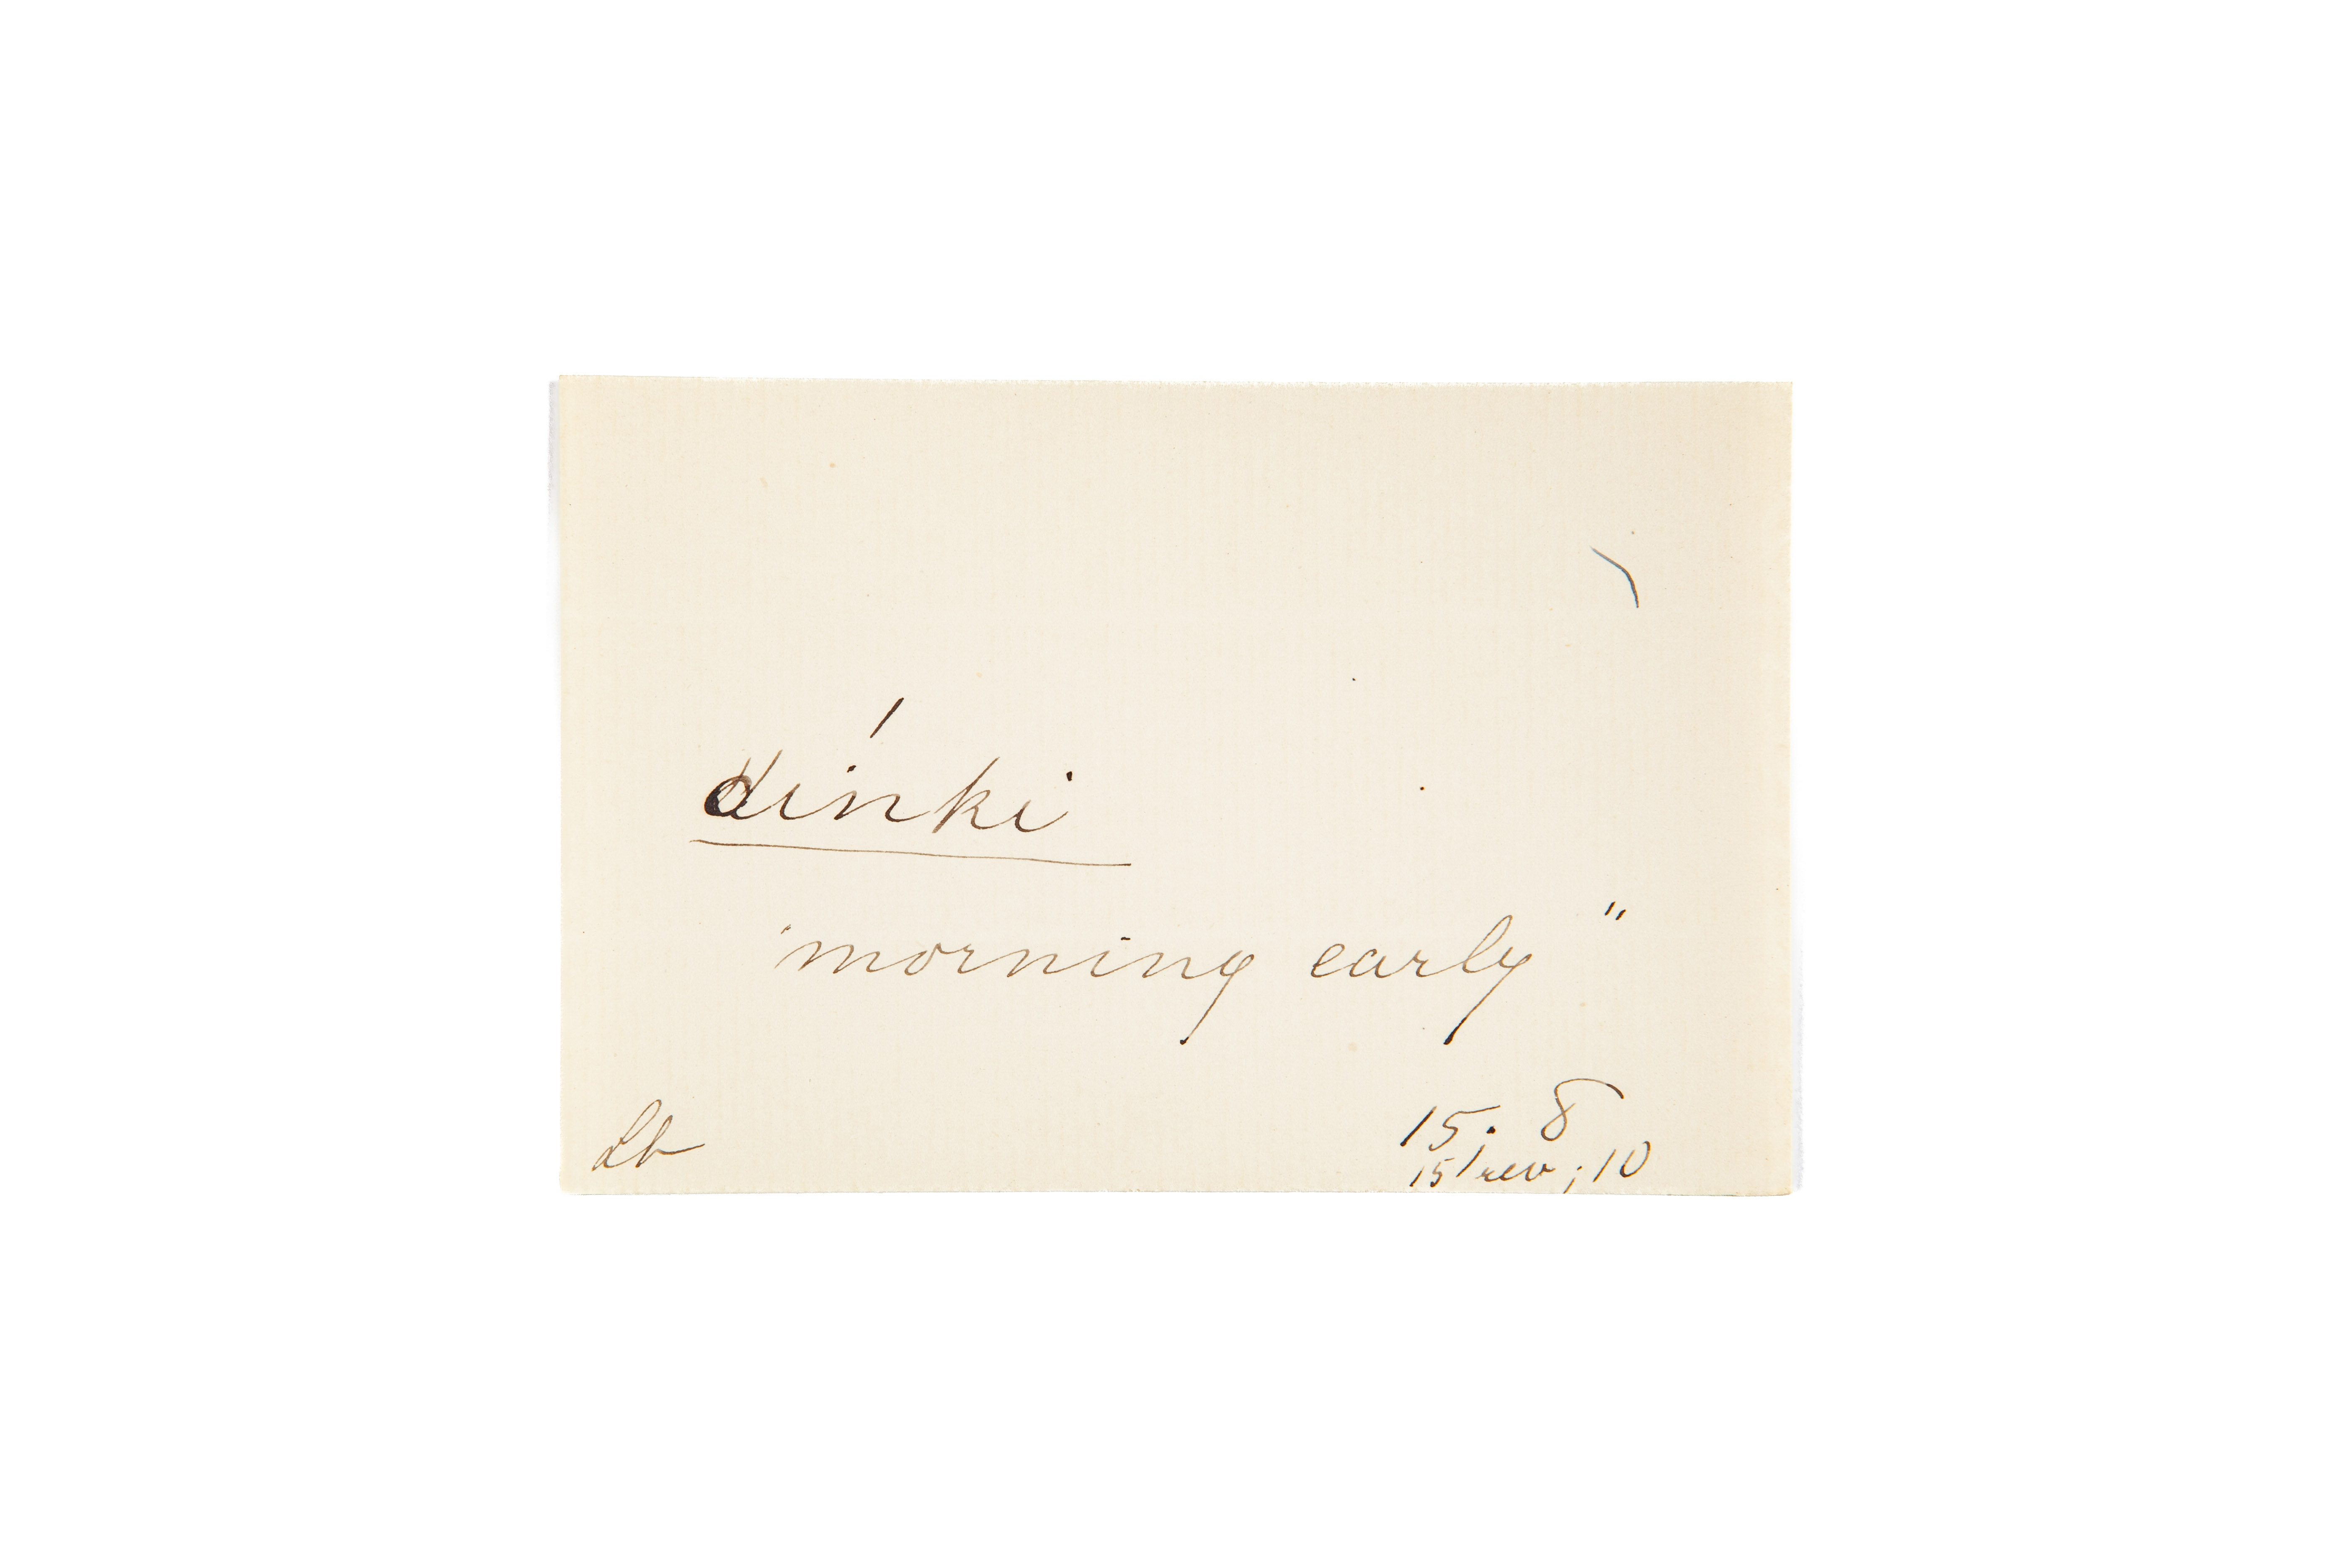 dínki
"morning early"
Lb
15; 8
15 rev; 10